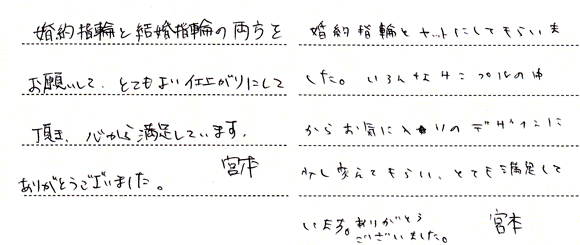 婚約指輪と結婚指輪の両方を
お願いして、とてもよい仕上がりにして
頂き、心から満足しています。
ありがとうございました。
宮本
婚約指輪とセットにしてもらいま
した。いろんなサンプルの中
からお気に入りのデザインに
少し変えてもらい、とても満足して
います。ありがとう
ございいました。
宮本